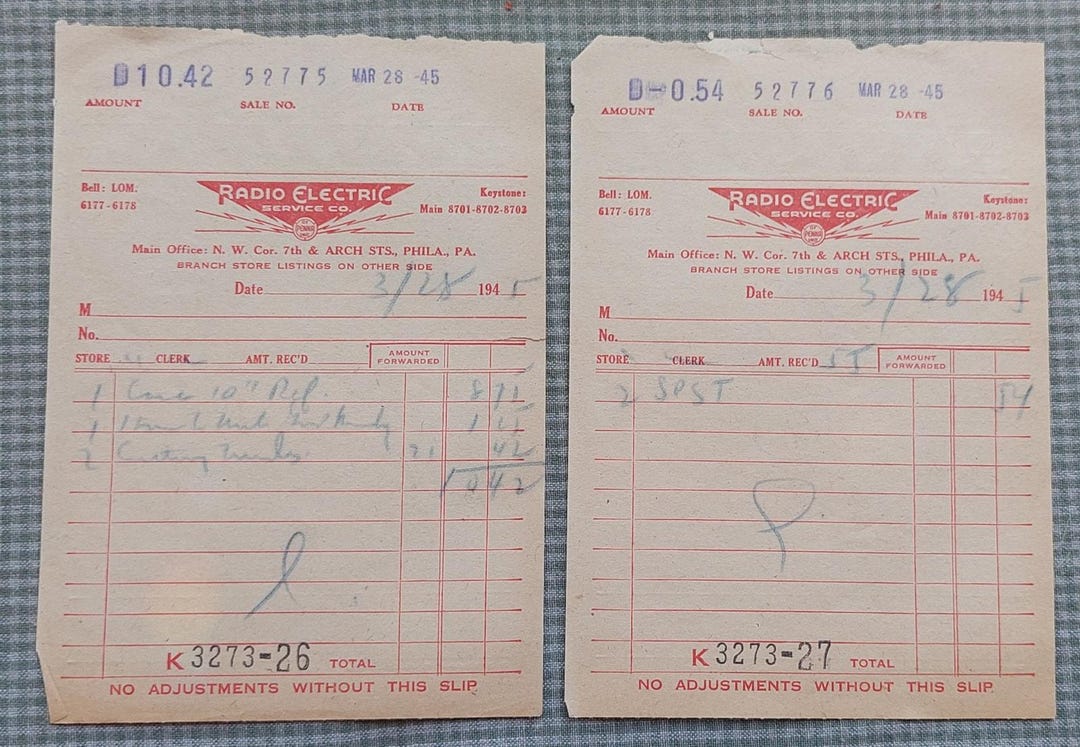 D10.42 52775 MAR 28 -45
AMOUNT SALE NO. DATE
Bell: LOM. 6177-6178
RADIO ELECTRIC
SERVICE CO.
OF PENNA INC.
Keystone: Main 8701-8702-8703
Main Office: N. W. Cor. 7th & ARCH STS., PHILA., PA.
BRANCH STORE LISTINGS ON OTHER SIDE
Date 3/28 1945
M
No.
STORE CLERK AMT. REC'D AMOUNT FORWARDED
1 10" 8
1 1
2 Cutting Needles 21 42
10 42
K 3273-26 TOTAL
NO ADJUSTMENTS WITHOUT THIS SLIP
D-0.54 52776 MAR 28 -45
AMOUNT SALE NO. DATE
Bell: LOM. 6177-6178
RADIO ELECTRIC
SERVICE CO.
OF PENNA INC.
Keystone: Main 8701-8702-8703
Main Office: N. W. Cor. 7th & ARCH STS., PHILA., PA.
BRANCH STORE LISTINGS ON OTHER SIDE
Date 3/28 1945
M
No.
STORE CLERK AMT. REC'D 55 AMOUNT FORWARDED
2 SPST 54
K 3273-27 TOTAL
NO ADJUSTMENTS WITHOUT THIS SLIP